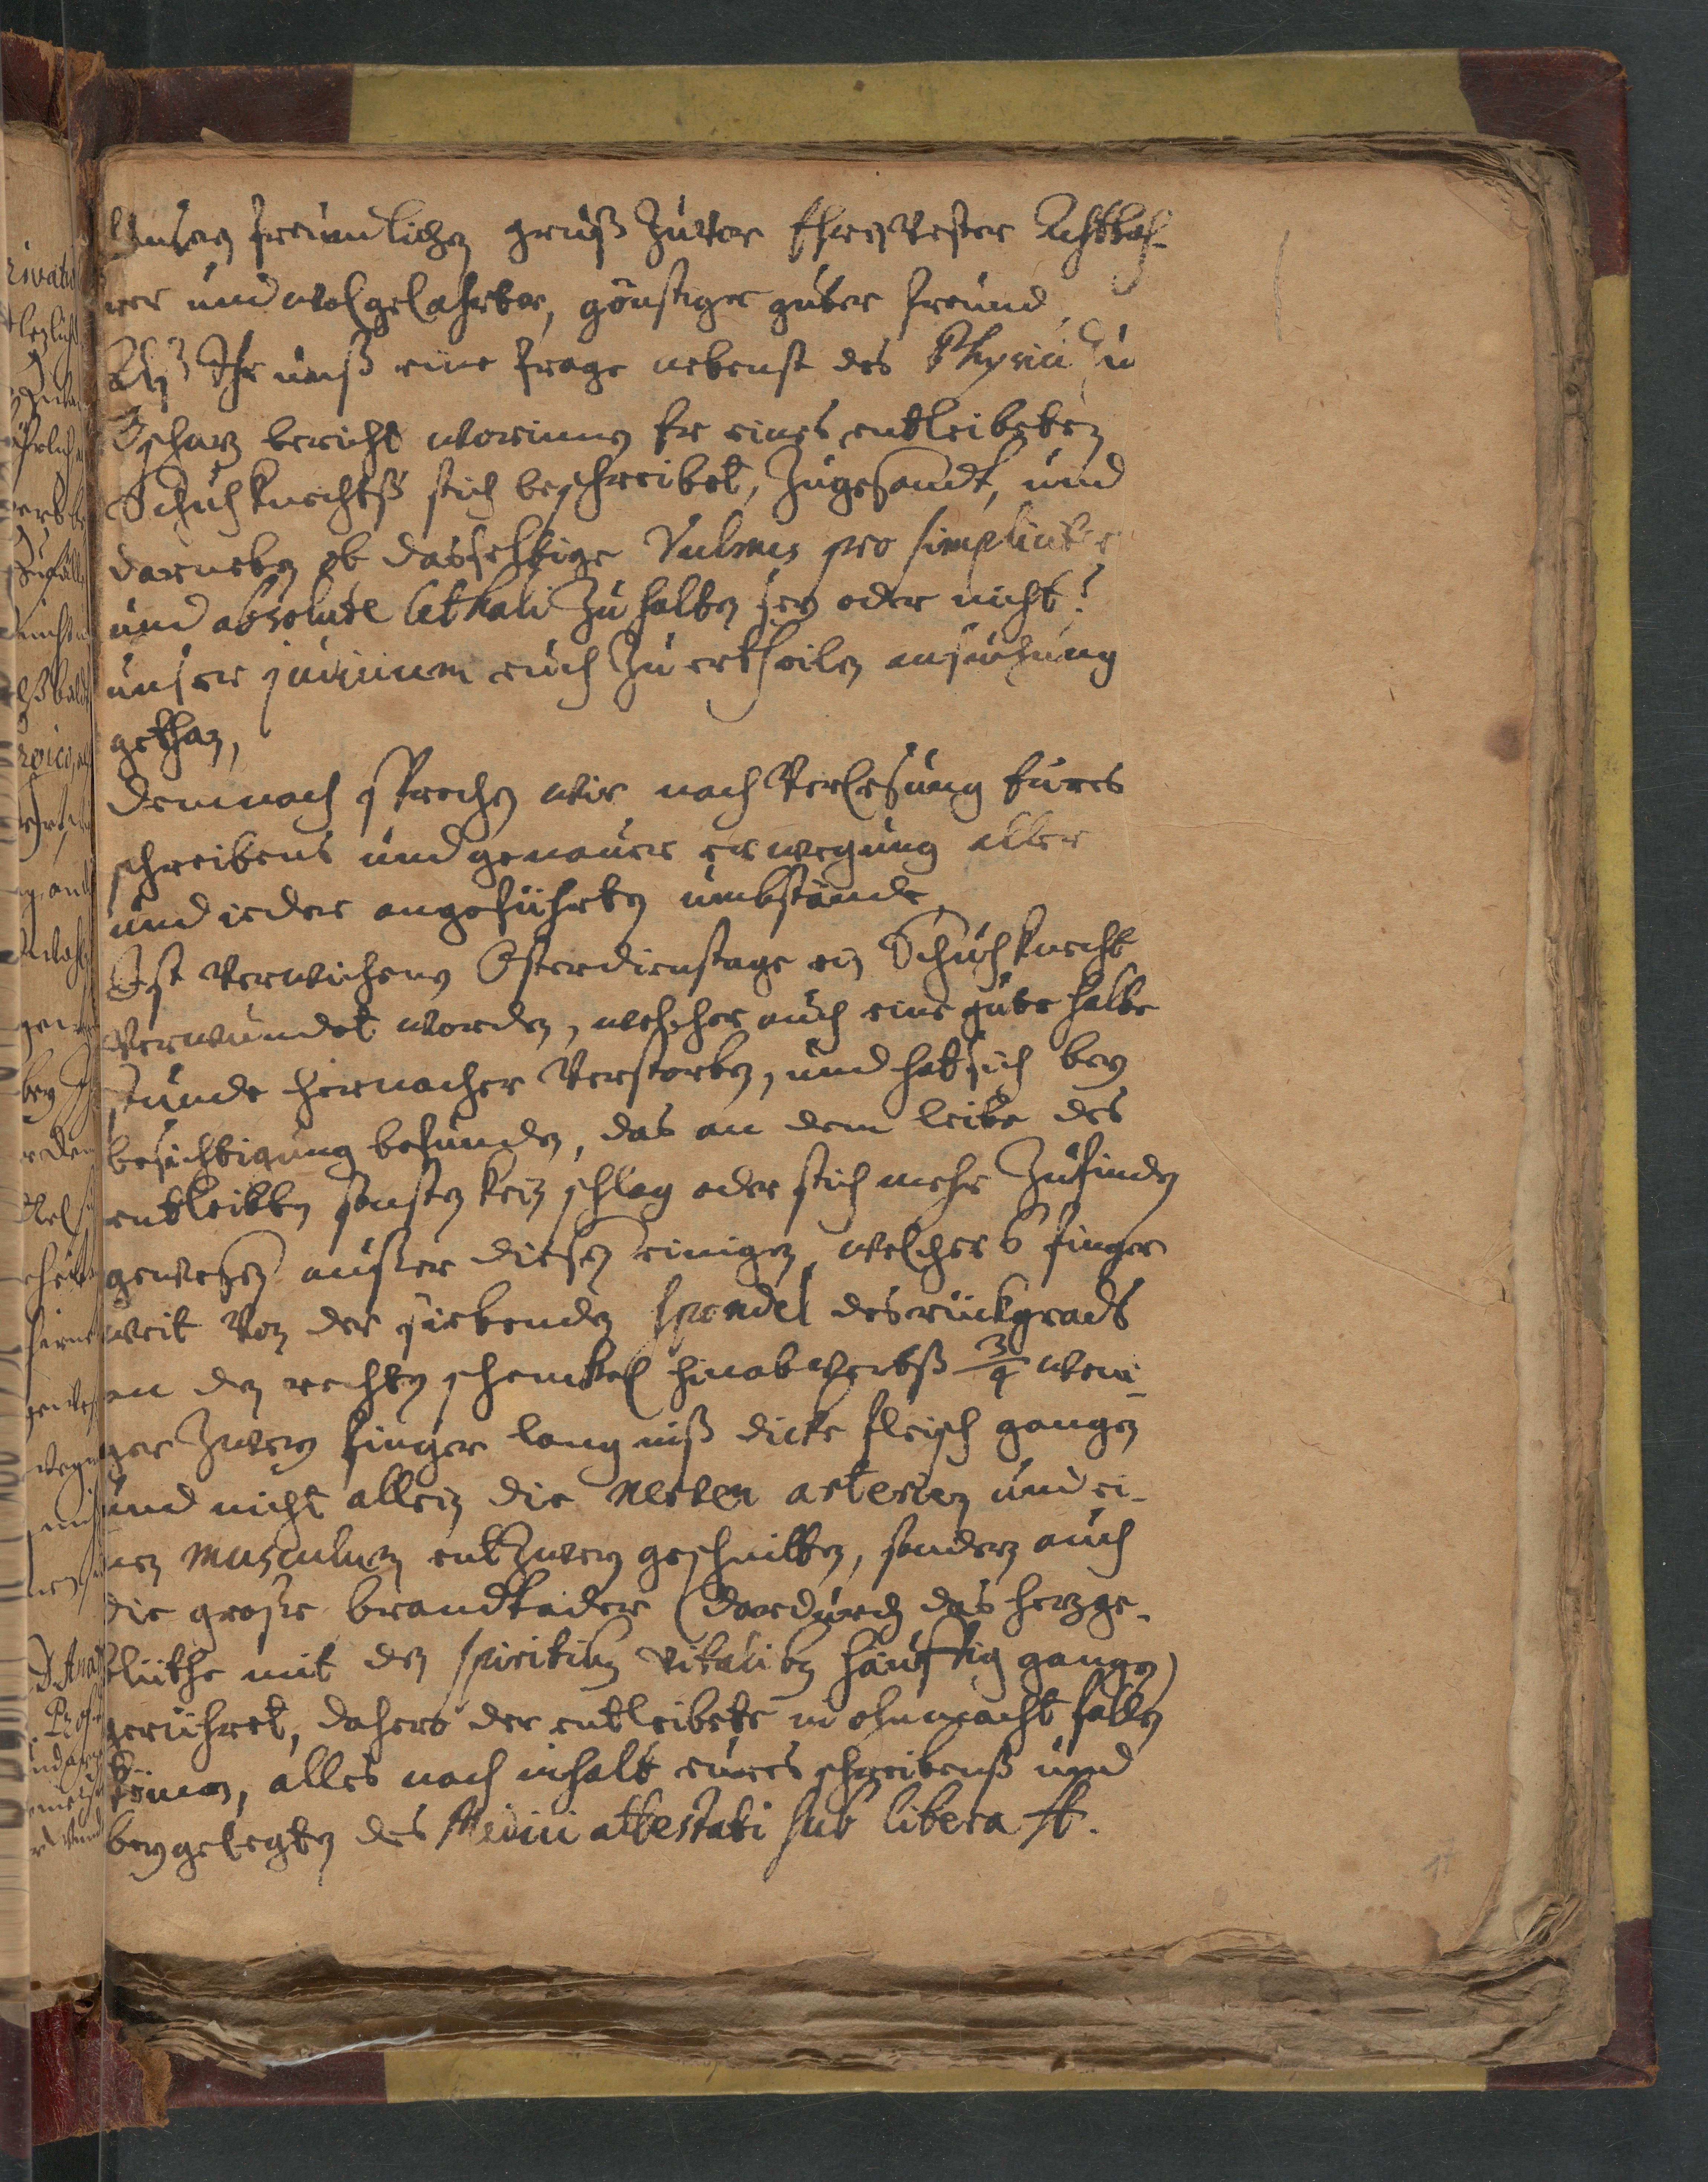 Unsern freundlichen gruß zuvor Ehrnvester Achtbah-
rer und wolgelahrter, günstiger guter freund,
Alß Ihr unß eine frage nebenst des Physici zu
bericht worinnen Er eines entleibeten
Schuhknechtß stich beschreibet, zugesandt, und
darneben ob dasselbige Vulnus pro simpliciter
und absolute lethali zu halten sey oder nicht?
unser judicium euch zu ertheilen ansuchung
gethan,
Demnach sprechen wir nach Verlesung Eures
schreibens und genauer erwegung aller
und ieder angeführten umbstände,
Ist verwichenen Osterdienstage ein Schuhknecht
verwundet worden, welcher auch eine gute halbe
stunde hernacher verstorben, und hat sich bey
besichtigung befunden, das an dem leibe des
entleibten sonsten kein schlag oder stich mehr zufinden
gewesen außer diesen einigen, welcher 6 finger
weit von der siebenden spondel des rückgrads
an den rechten schenckel hinabwerts 3/4 weni-
ger zweyer finger lang niß dicke fleisch gangen
und nicht allein die nerven arterien und ei-
nen musculum entzwey geschnitten, sondern auch
die große brandtader (dardurch das herzge-
blüthe mit den spiritibus vitalibus häuffig gangen)
gerühret, dahero der entleibete in ohnmacht fallen
können, alles nach inhalt eures schreibenß und
beygelegten des Medici attestati sub libera A.